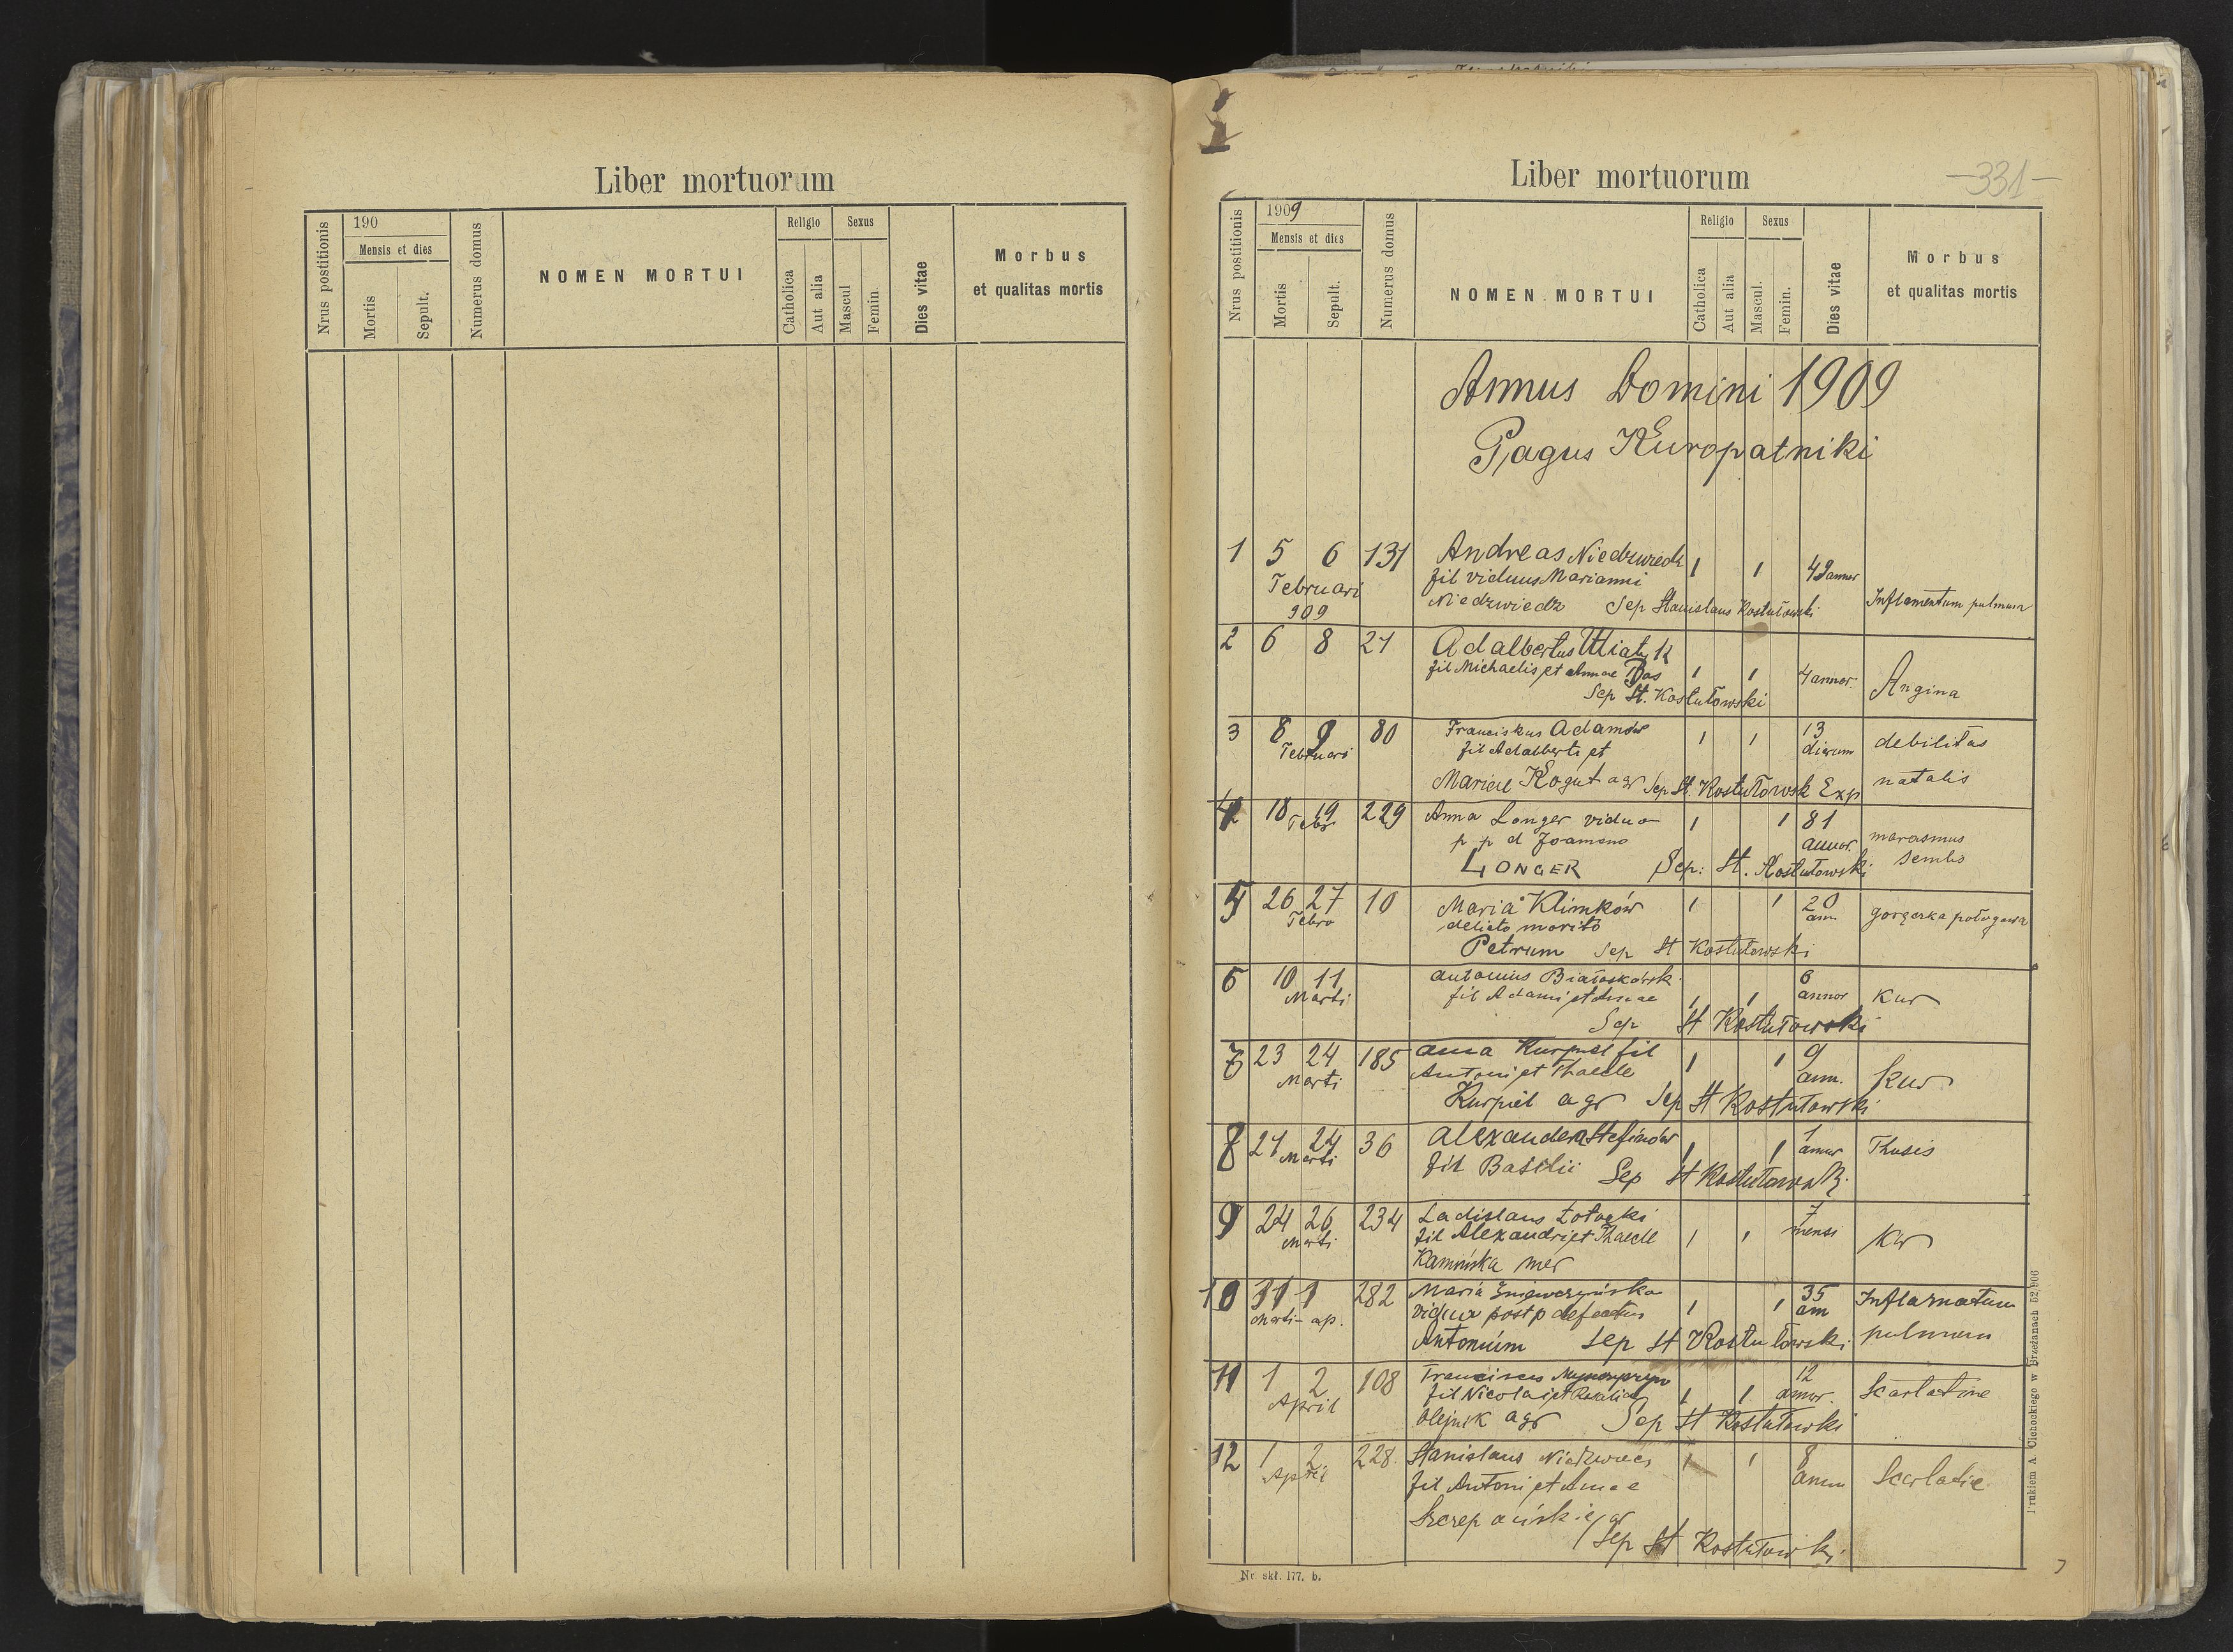 Liber mortuorum
Nrus postitionis
190
Mensis et dies
Mortis
Sepult.
Numerus domus
NOMEN MORTUI
Religio
Catholica
Aut alia
Sexus
Mascul
Femin.
Dies vitae
Morbus
et qualitas mortis
Liber mortuorum
-331-
Nrus postitionis
1909
Mensis et dies
Mortis
Sepult.
Numerus domus
NOMEN MORTUI
Religio
Catholica
Aut alia
Sexus
Mascul.
Femin.
Dies vitae
Morbus
et qualitas mortis
Annus Domini 1909
Pagus Kuropatniki
1 5 6 131 Andreas 1 1 annor
Februari fil viduus Marianni
909 Niedzwiedz Sep Stanislaus Kostułowski Inflamentum pulmum
2 6 8 21 Adalbertus
fil Michaelis et Annae Bas 1 1 4 annor. Angina
Sep St. Kostułowski
3 8 9 80 Franciskus Adamów 1 1 13
Februari fil Adalberti et dierum debilitas
Mariae Kogut agr Sep St. Kostułowsk Exp natalis
4 18 19 229 Anna Longer vidua 1 1 81
Febr p p d annor. marasmus
LONGER Sep: St. Kostułowski
5 26 27 10 Maria Klimków 1 1 20
Febro marito ann gorączka połogowa
Petrum Sep St Kostułowski
6 10 11 Antonius 6
Marti fil Adami et Annae 1 1 annor Kur
Sep St Kostułowski
7 23 24 185 Anna Kurpiel fil 1 1 9
Marti Antoni et Thecle ann. Kur
Kurpiel agr Sep St Kostułowski
8 21 24 36 Alexandera Stefinów 1
Marti fil Basilii 1 1 annor Thusis
Sep St
9 24 26 234 Ladislaus 7
Marti fil Alexandri et Thecle 1 1 mensi Kur
Kamińska mer
10 31 1 282 Maria 35 Inflamatum
Marti - ap. vidua post p defectus 1 1 ann
Antonium Sep St Kostułowski pulmum
11 1 2 108 Franciscus 12
April fil Nicolai et Rozalia 1 1 annor. Scarlatine
Olejnik agr Sep St Kostułowski
12 1 2 228. Stanislaus 1 1 8
April fil Antoni et Annae annor Scarlatie
Szczepańskie agr
Sep St Kostułowski
Nr. skł. 177. b.
Drukiem A. Olchockiego w Brzeżanach 52/906